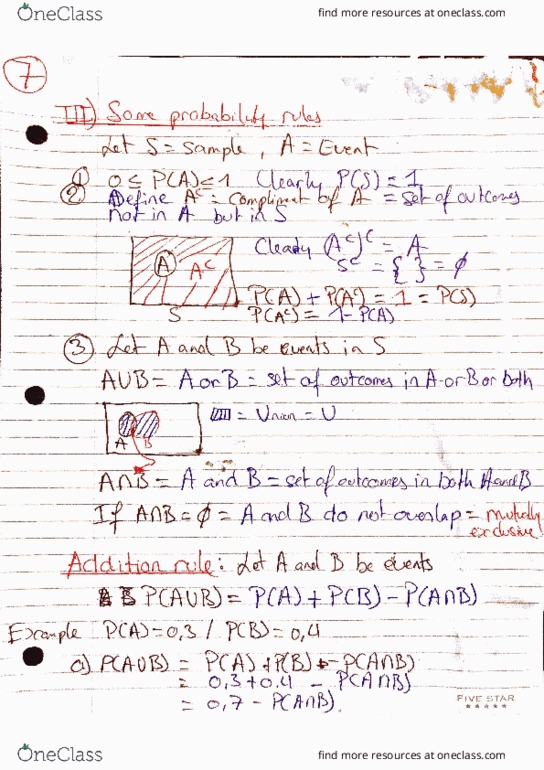 OneClass find more resources at oneclass.com
7
III) Some probability rules
Let S = Sample , A = Event
① 0 ≤ P(A) ≤ 1 Clearly P(S) = 1
② Define Aᶜ = compliment of A = set of outcomes
not in A but in S
Clearly (Aᶜ)ᶜ = A
Sᶜ = { } = ∅
A Aᶜ
P(A) + P(Aᶜ) = 1 = P(S)
S P(Aᶜ) = 1 - P(A)
③ Let A and B be events in S
AUB = A or B = set of outcomes in A or B or both
= Union = U
A B
A∩B = A and B = set of outcomes in both A and B
If A∩B = ∅ = A and B do not overlap = mutually
exclusive
Addition rule: Let A and B be events
P(AUB) = P(A) + P(B) - P(A∩B)
Example P(A) = 0,3 / P(B) = 0,4
a) P(AUB) = P(A) + P(B) - P(A∩B)
= 0,3 + 0,4 - P(A∩B)
= 0,7 - P(A∩B)
FIVE STAR
★★★★★
OneClass find more resources at oneclass.com